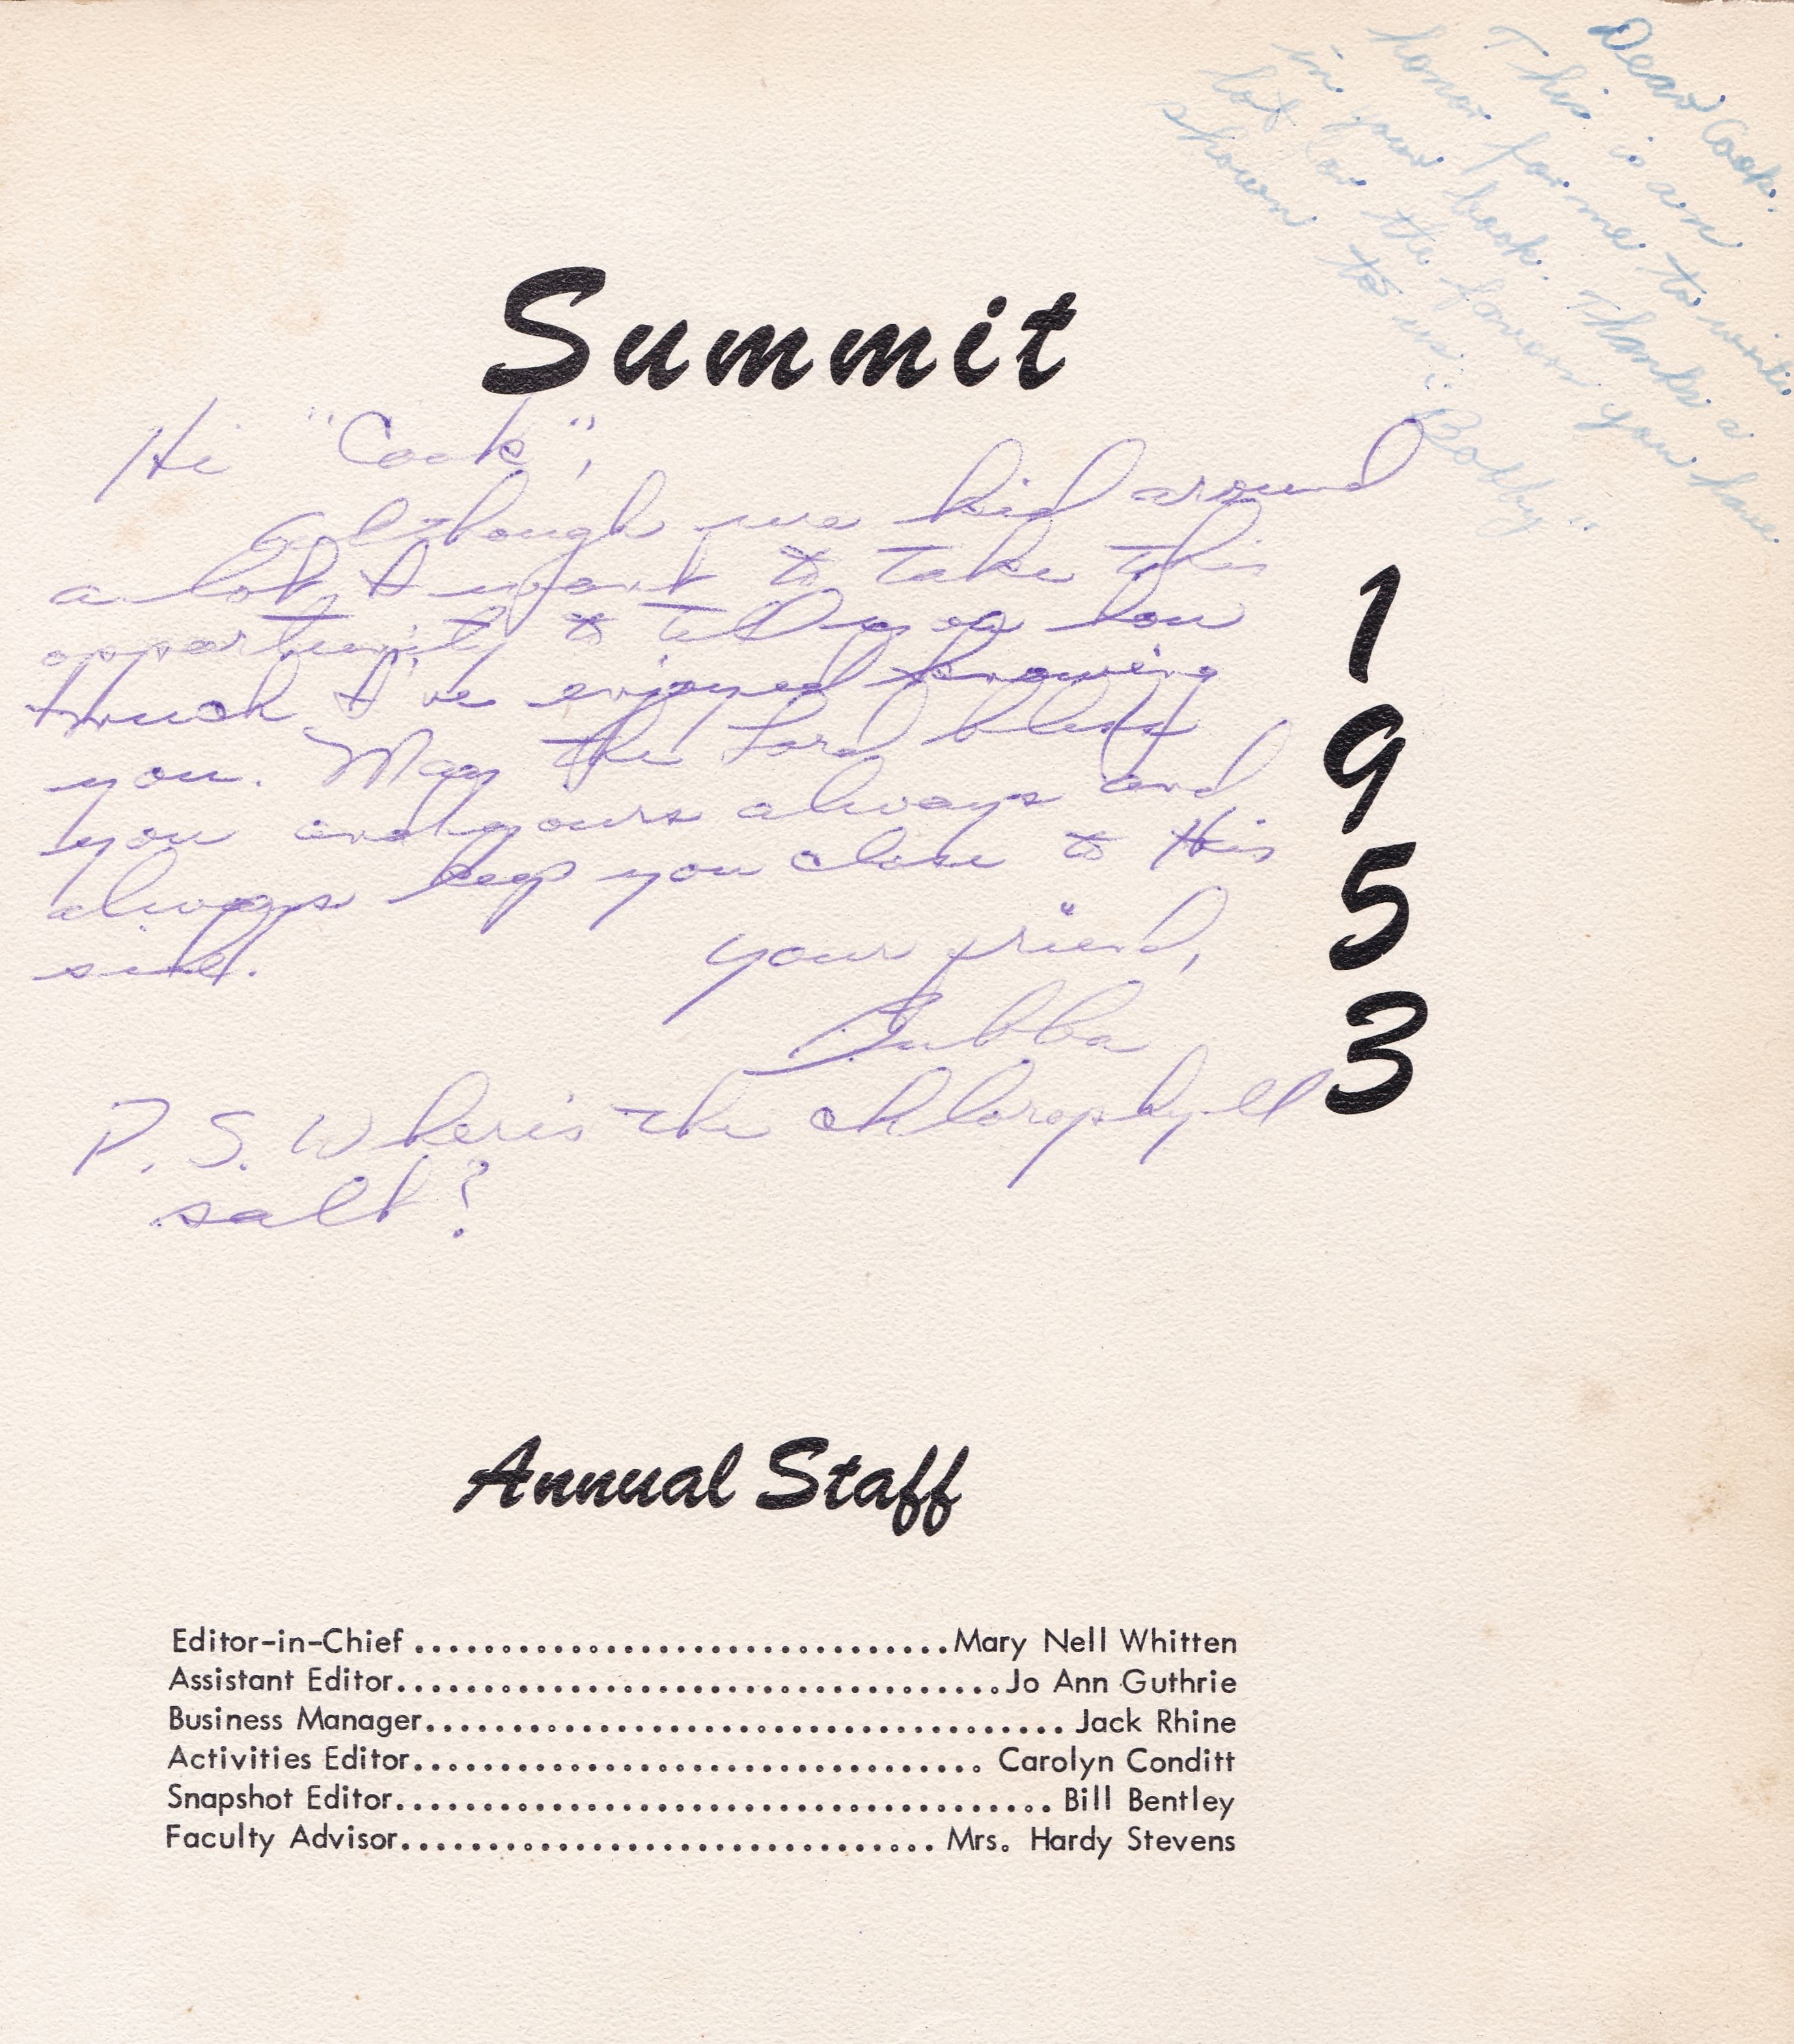 Dear Cook.
This is an
honor for me to write
in your book. Thanks a
lot for the favors you have
shown to us.
"Bobby"
Summit
Hi "Cook",
Although we kid around
a lot, I want to take this
opportunity to tell you how
much I've enjoyed knowing
you. May the Lord bless
you and yours always and
always keep you close to His
side.
your friend,
Bubba
P.S. Wher'is the chlorophyll
salt?
1
9
5
3
Annual Staff
Editor-in-Chief ................................Mary Nell Whitten
Assistant Editor...................................Jo Ann Guthrie
Business Manager..................................... Jack Rhine
Activities Editor................................. Carolyn Conditt
Snapshot Editor...................................... Bill Bentley
Faculty Advisor............................... Mrs. Hardy Stevens